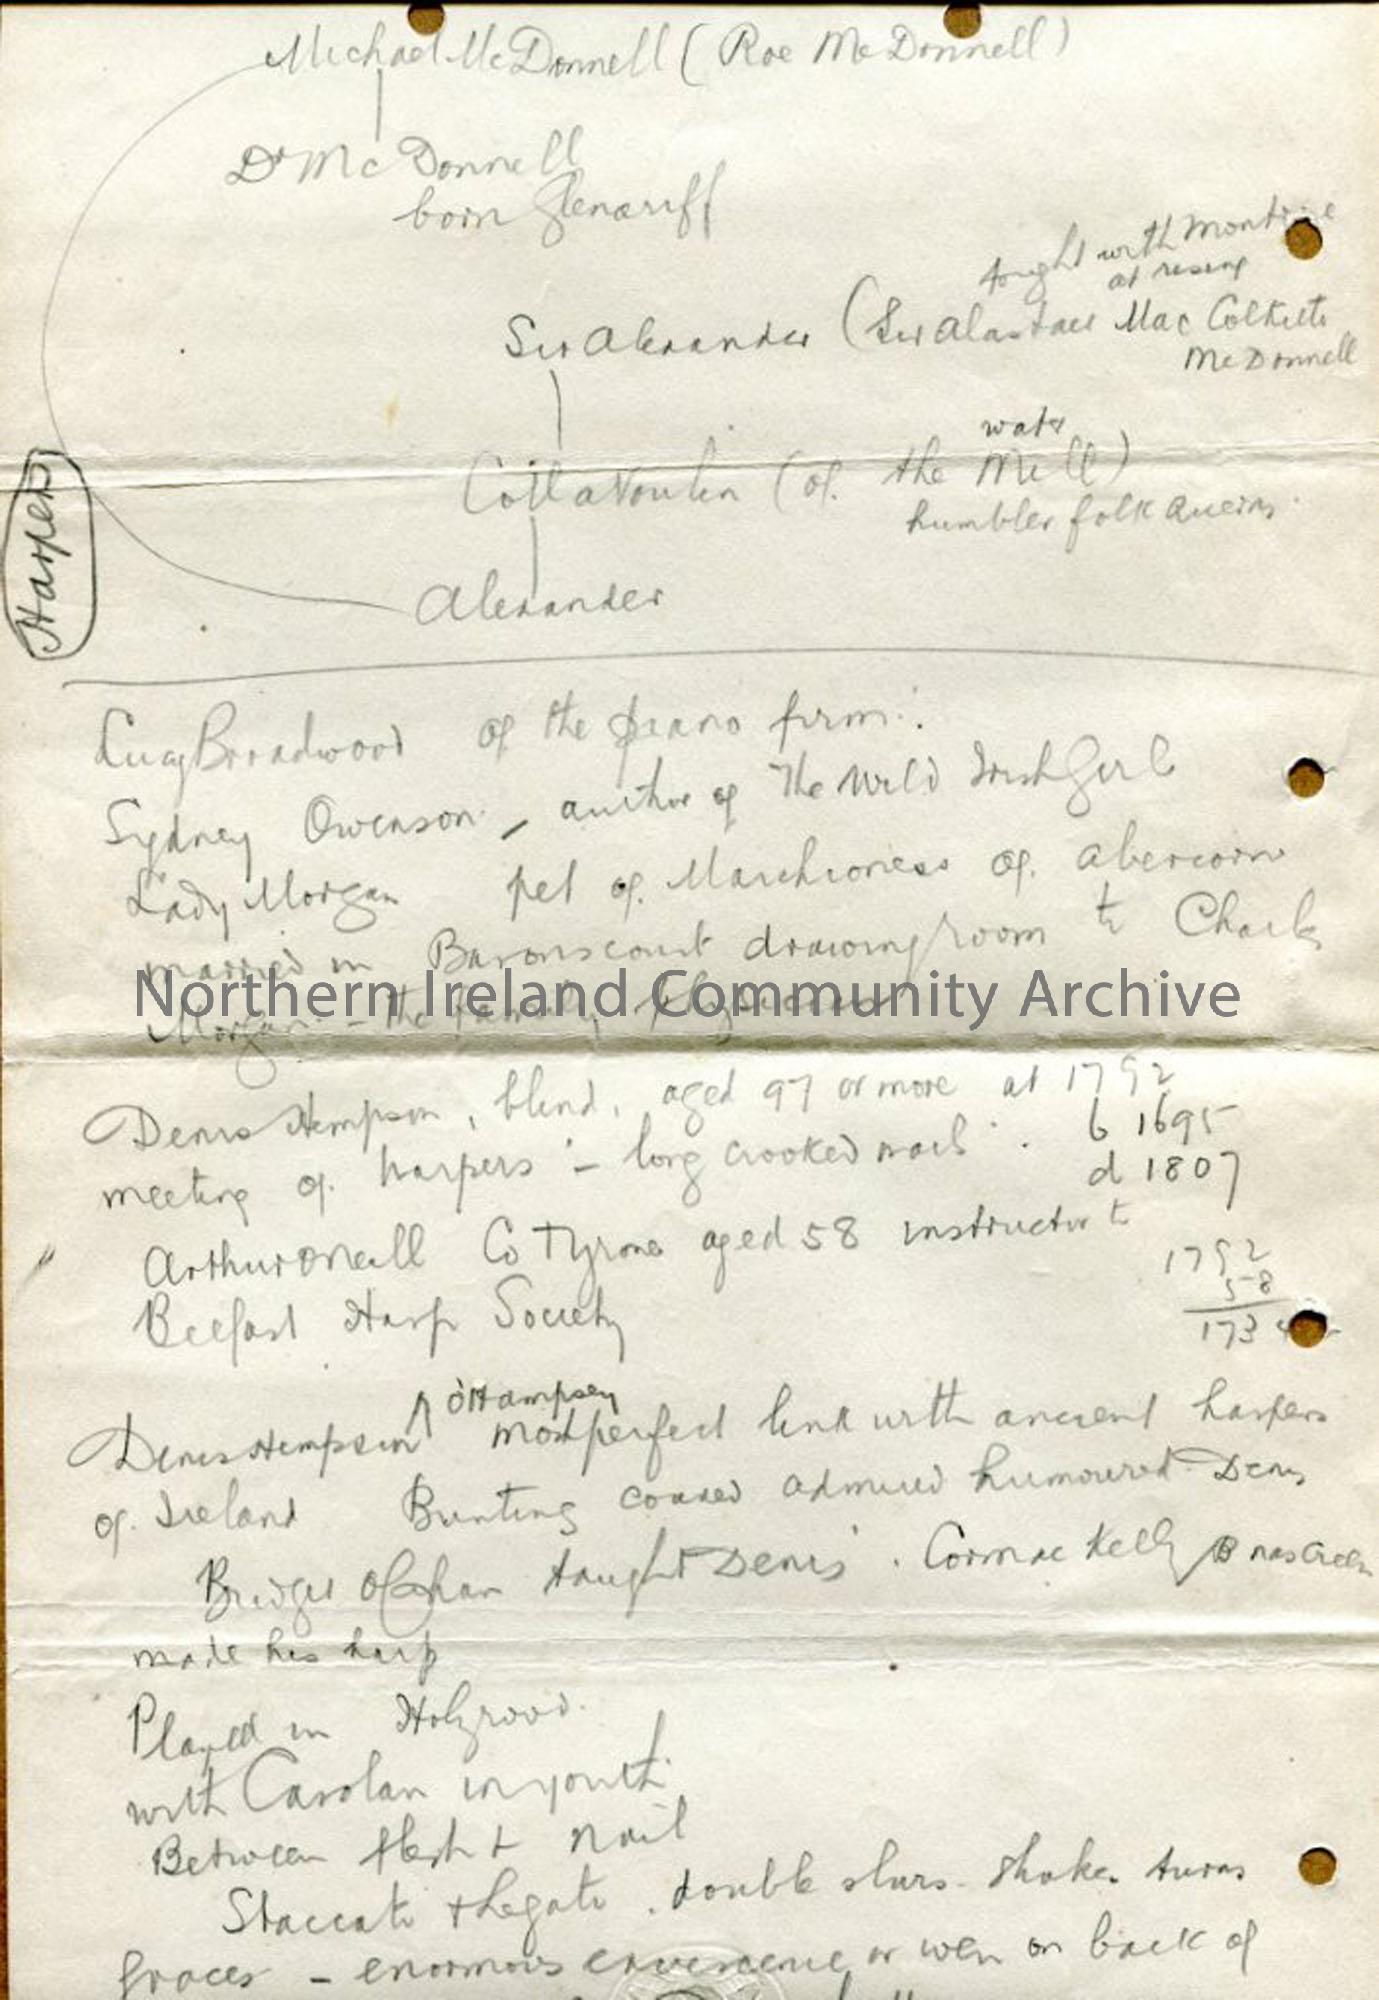 Michael McDonnell (Roe McDonnell)
Dr McDonnell
born Glenariff
fought with Montrose
at rising
Sir Alexander (Sir Alastair Mac Colkitto
McDonnell
water
Coll a Voulin (of the Mill)
humbler folk querns
Harper
Alexander
Lucy Broadwood of the piano firm.
Sydney Owenson, author of The Wild Irish Girl
Lady Morgan pet of Marchioness of Abercorn
married in Baronscourt drawing room to Charles
Northern Ireland Community Archive
Morgan - the family physician
Denis Hempson, blind, aged 97 or more at 1792
meeting of harpers - long crooked nails.
b 1695
d 1807
Arthur O'Neill Co Tyrone aged 58 instructor to
Belfast Harp Society
1792
58
1734
O'Hampsey
Denis Hempson most perfect link with ancient harpers
of Ireland Bunting coaxed admired humoured Denis
Bridget O'Cahan taught Denis. Cormac Kelly
made his harp
Played in Holyrood.
with Carolan in youth
Between flesh & nail
Staccato & legato. double slurs. shakes turns
graces - enormous excrescence or wen on back of